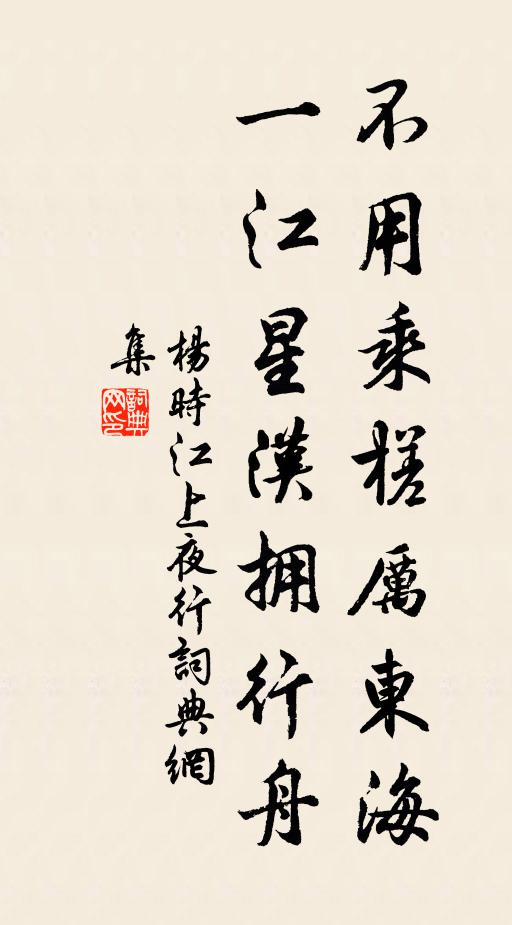 不用乘槎厲東海
一江星漢拥行舟
楊時江上夜行詞典網
集
詞典
网印